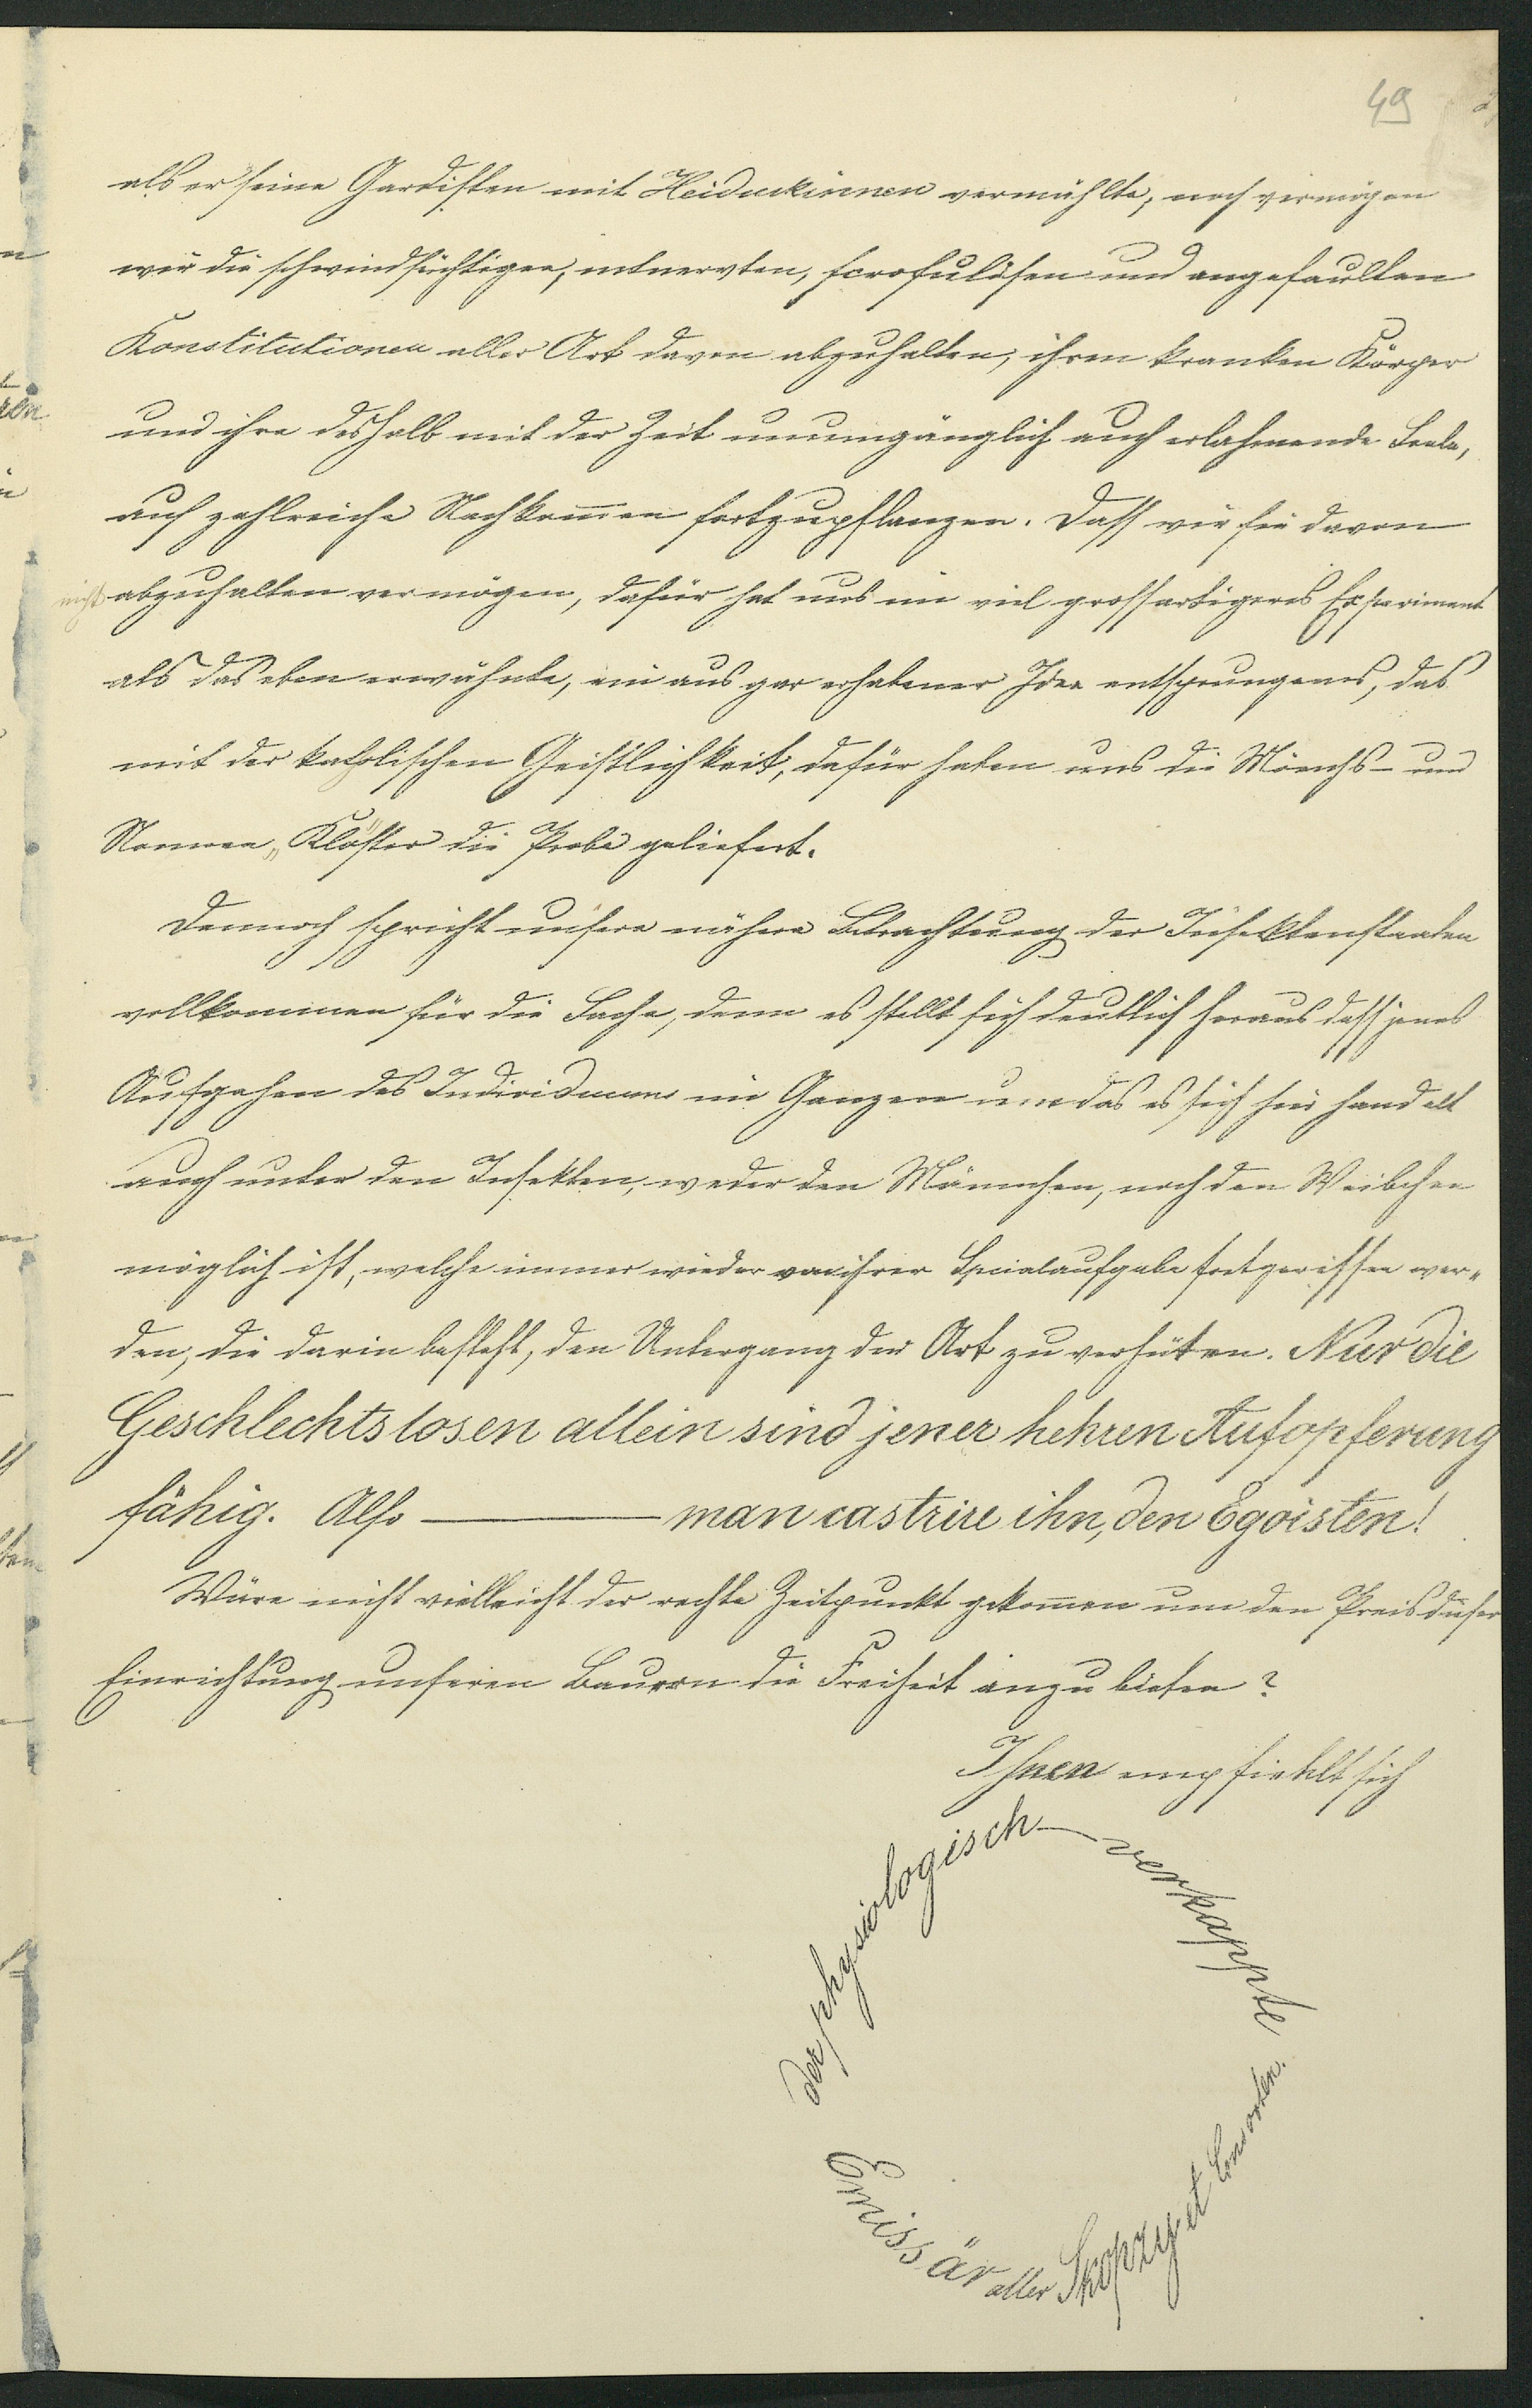 49
als er seine Gardisten mit Heiduckinnen vermählte, noch vermögen
wir die schwindsüchtigen, entnervten, scrofulösen und angefaulten
Konstitutionen aller Art davon abzuhalten, ihren kranken Körper
und ihre deshalb mit der Zeit unumgänglich auch erlahmende Seele,
auf zahlreiche Nachkom̅en fortzupflanzen. Dass wir sie davon
nicht abzuhalten vermögen, dafür hat uns ein viel grossartigeres Experiment
als das eben erwähnte, ein aus gar erhabener Idee entsprungenes, das
mit der katholischen Geistlichkeit, dafür haben uns die Mönchs- und
Nonnen„Klöster die Probe geliefert.
Dennoch spricht unsere nähere Betrachtung der Insektenstaaten
vollkommen für die Sache, denn es stellt sich deutlich heraus dass jenes
Aufgehen des Individuums im Ganzen um das es sich hier handelt
auch unter den Insekten, weder den Männchen, noch den Weibchen
möglich ist, welche immer wieder von ihrer Specialaufgabe fortgerissen wer-
den, die darin besteht, den Untergang der Art zu verhüten. Nur die
Geschlechtslosen allein sind jener hehren Aufopferung
fähig. Also ——— man castrire ihn, den Egoisten!
Wäre nicht vielleicht der rechte Zeitpunkt gekom̅en um den Preis dieser
Einrichtung unseren Bauern die Freiheit anzubieten?
Ihnen empfiehlt sich
der physiologisch-verkappte
Emissär aller Skopzy et Consorten.